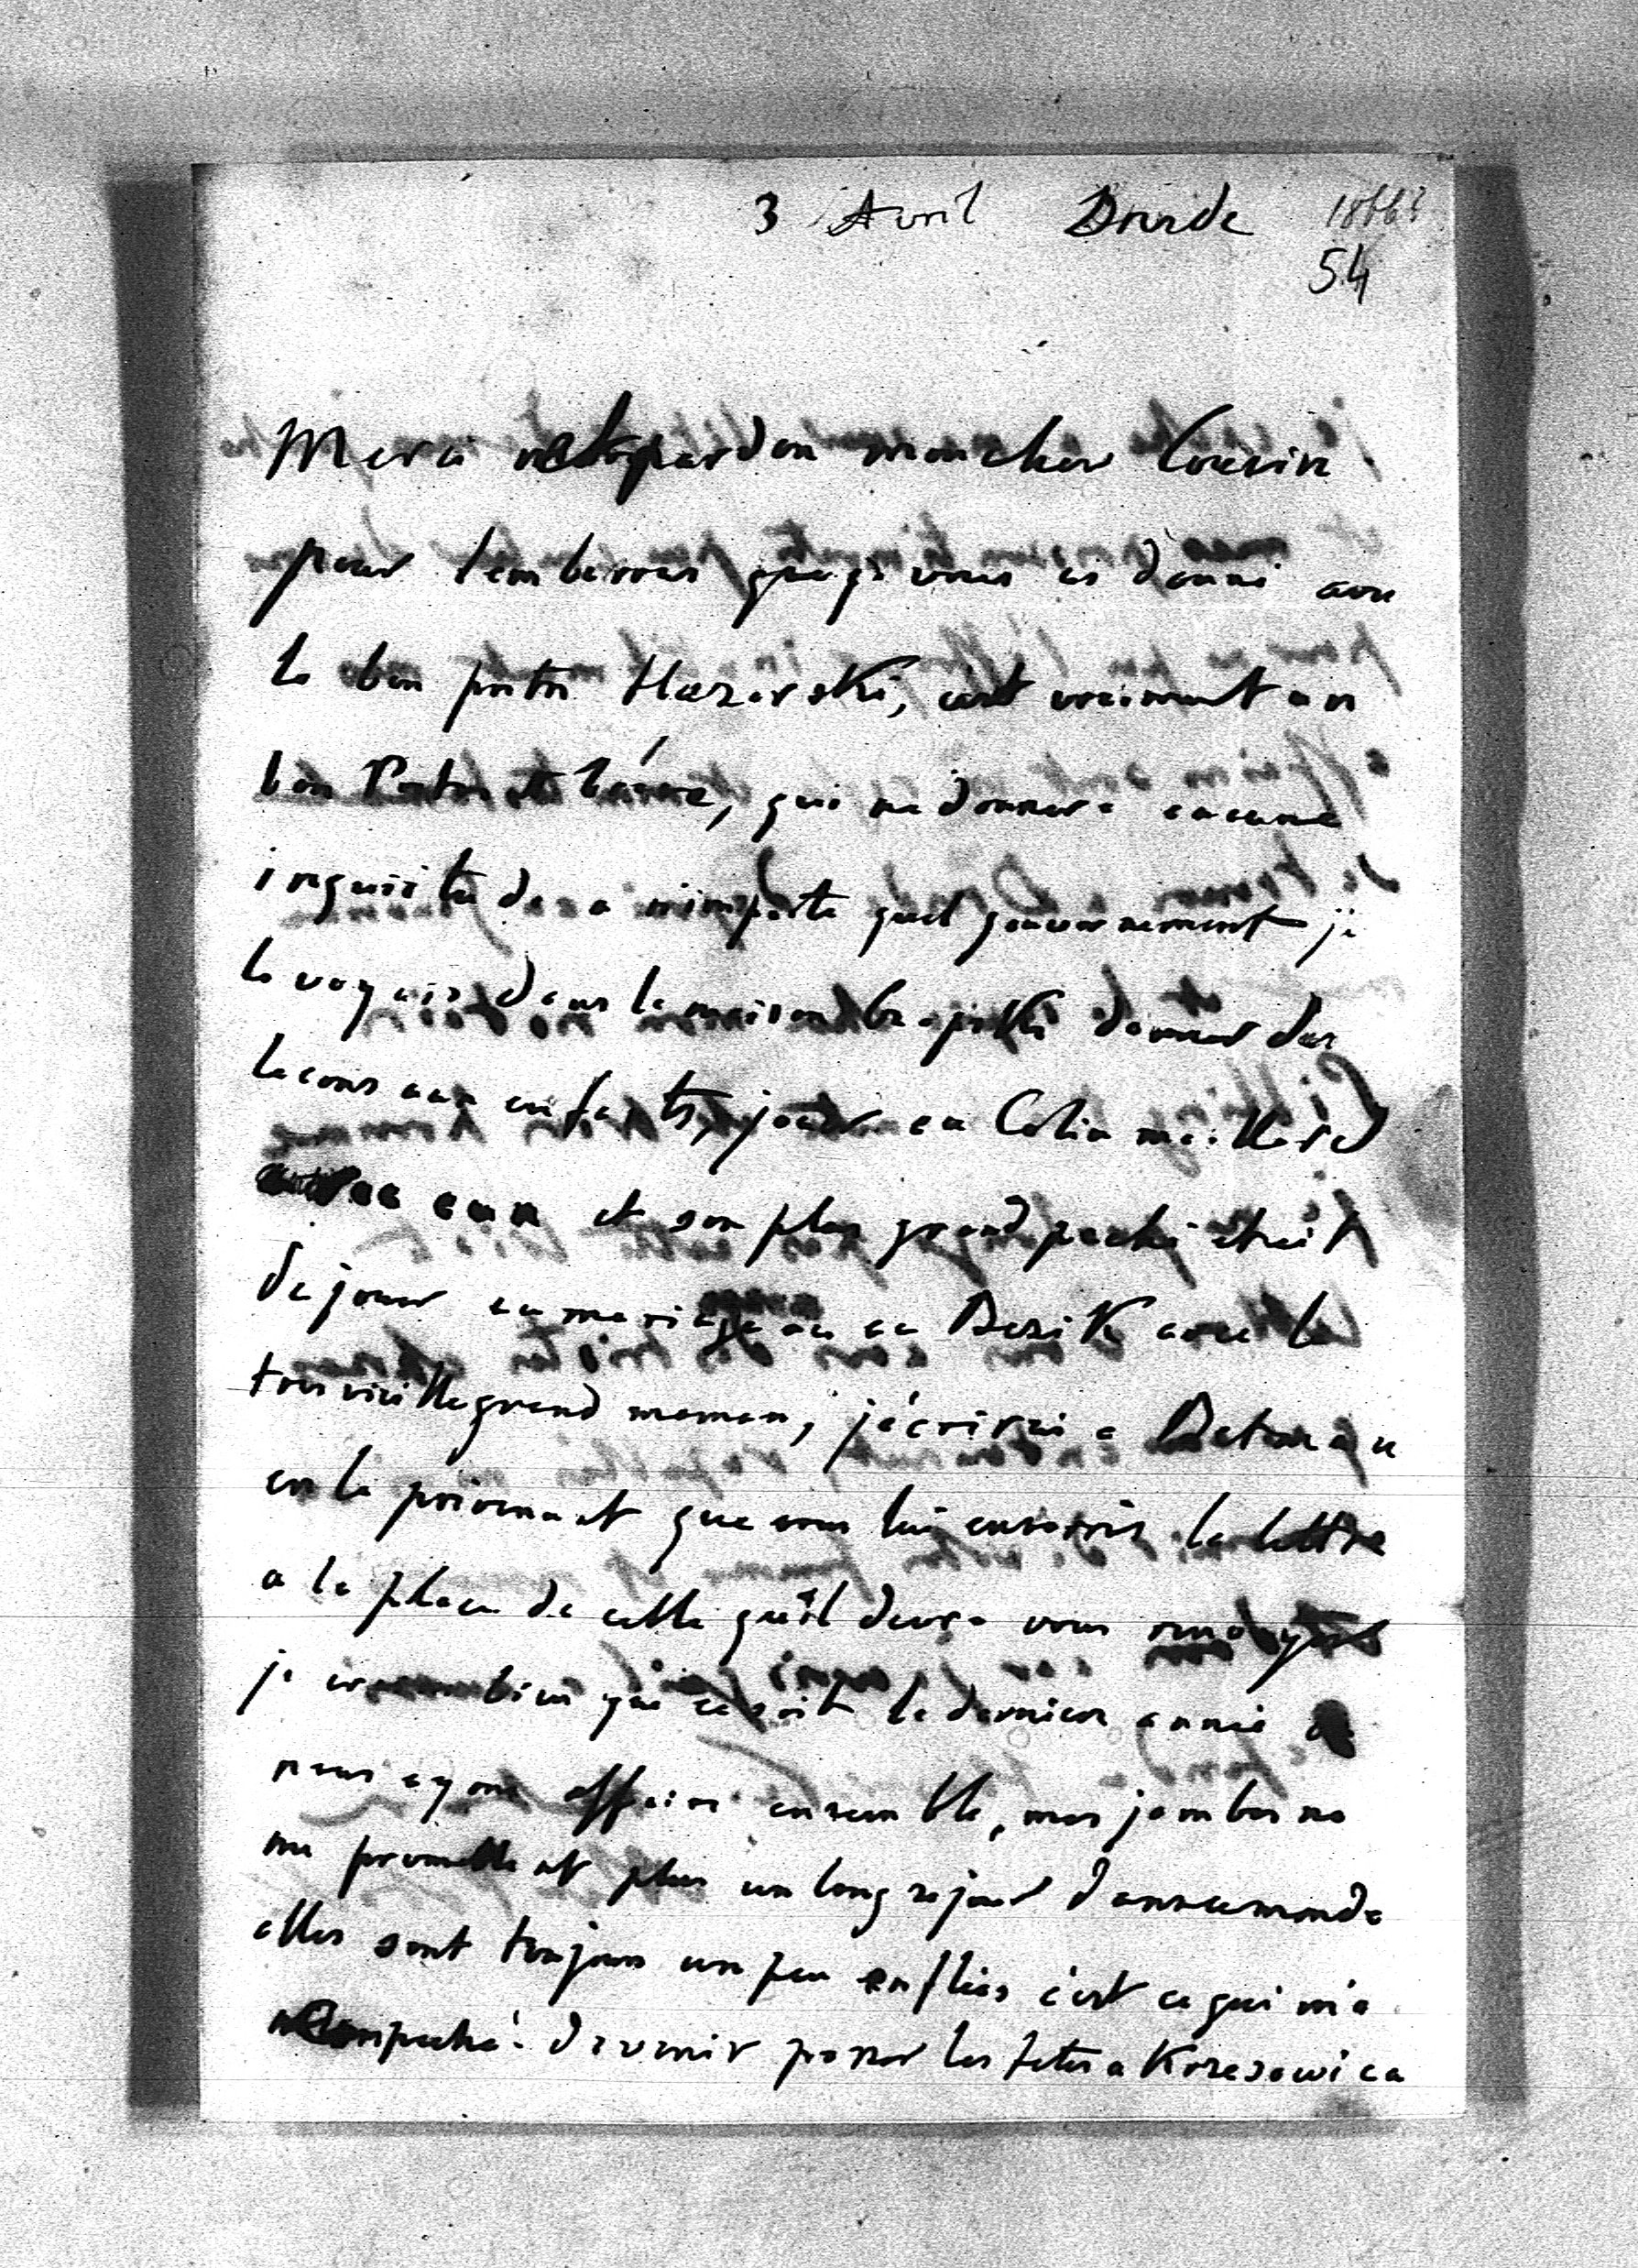 3 Avril Druide 1866?
54
Merci et pardon mon cher Cousin
pour l'embarras que je vous ai donné avec
le bon pretre Hazarski, c'est vraiment un
bon Pretre, qui ne donnera aucune
inquiitude a n'importe quel gouvernement je
le voyais dans la maison donner des
lecons aux enfants, jouer au Colin maillard
eux et son plus grand peché était
de jouer au mariage ou au Bezik avec la
tres vieille grand maman, j'écrirai a
en le privenant que vous lui enverris la lettre
a la place de celle qu'il devra vous
je crois bien que ce soit la derniere année
nous ayons affaire ensemble, mes jambes ne
me promettent plus un long sejour dans ce monde
elles sont toujours un peu enflées c'est ce qui m'a
empeché de venir passer les fetes a Krzeszowica